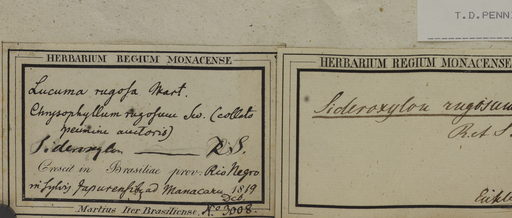 T.D. PENN
HERBARIUM REGIUM MONACENSE
Lucuma rugosa Mart.
Chrysophyllum rugosum Sw. (collato
specimine auctoris)
Sideroxylon ——— R&S.
Crescit in Brasiliae prov. Rio Negro
in sylvis Japurensib, ad Manacaru, 1819
Dcb.
Martius Iter Brasiliense. No. 3008.
HERBARIUM REGIUM MONACENSE
Sideroxylon rugosum
R. et S.